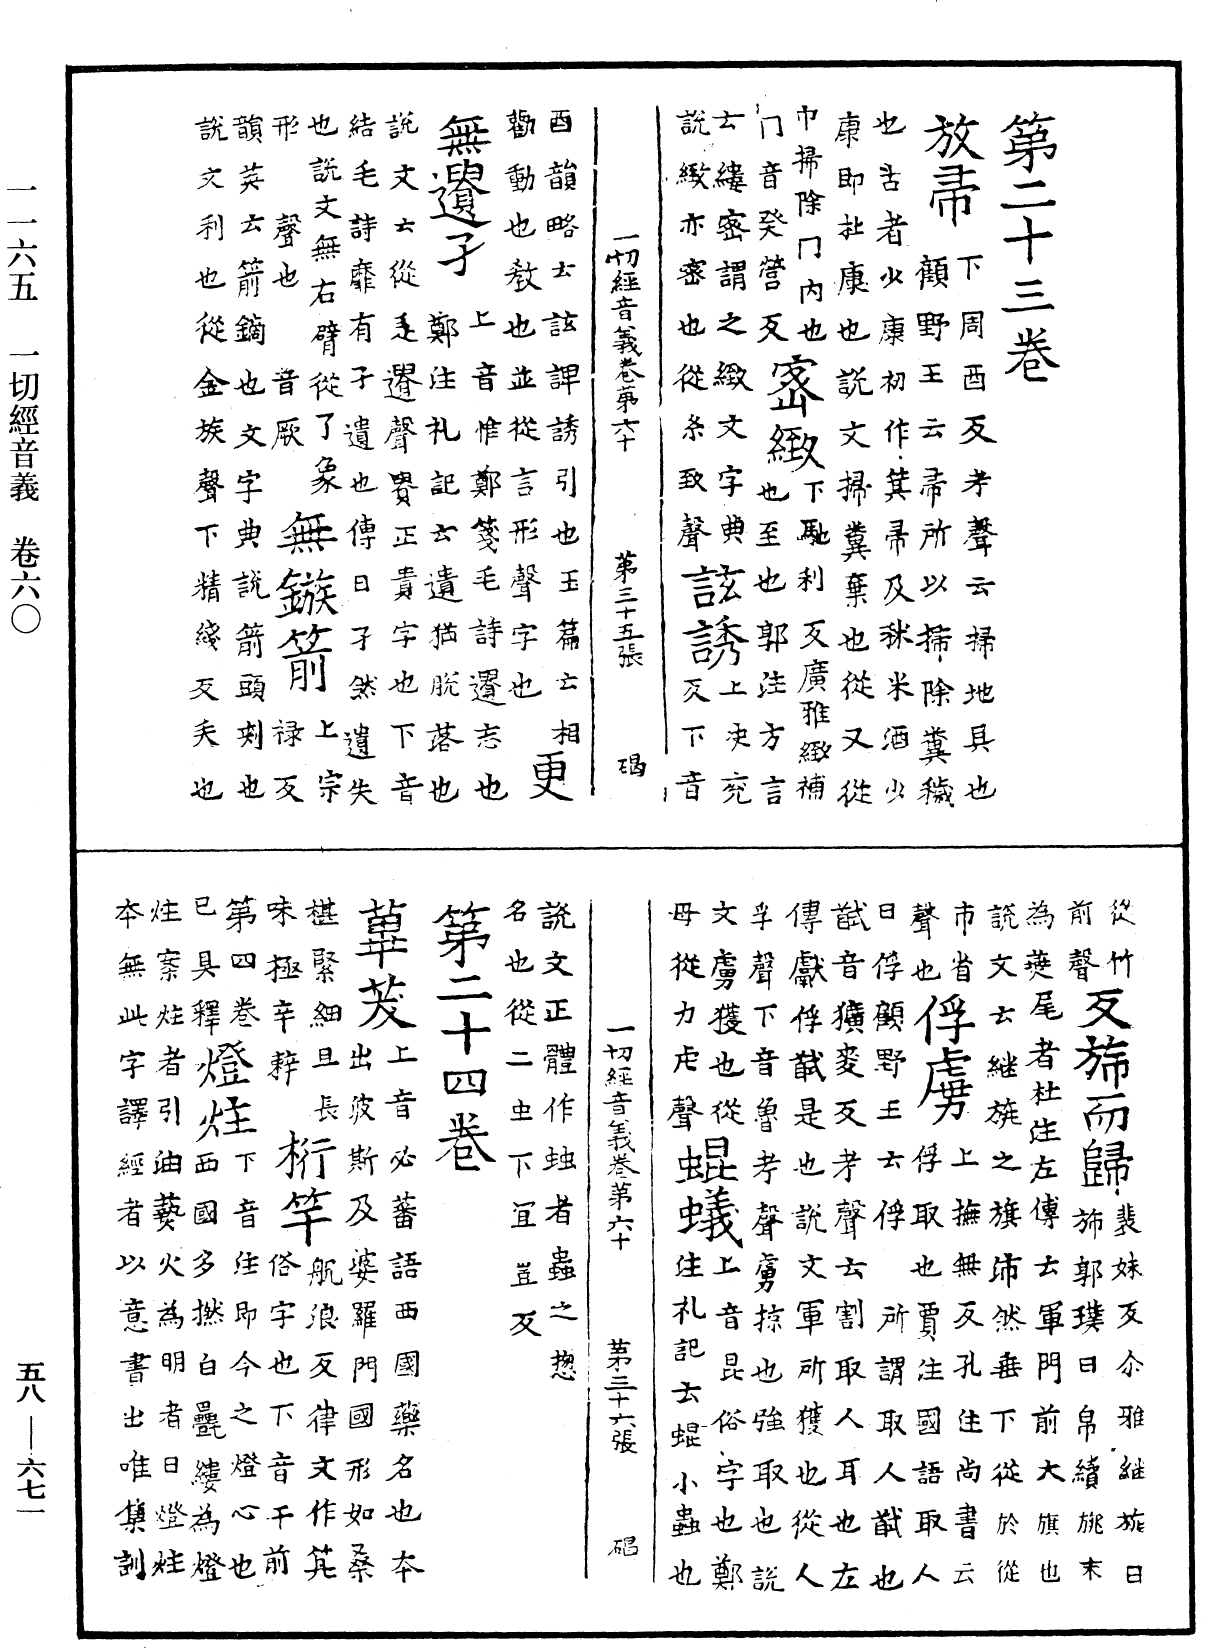 第二十三卷
放帚下周酉反考聲云掃地具也
顧野王云帚所以掃除糞穢
也古者少康初作箕帚及秫米酒少
康即杜康也說文掃糞棄也從又從
巾掃除冂內也
冂音癸營反
密緻下馳利反廣雅緻補
也至也郭注方言
云縷密謂之緻文字典
說緻亦密也從糸致聲
詃誘上决兖
反下音
一切經音義卷第六十 第三十五張 碣
酉韻略云詃誂誘引也玉篇云相
勸動也教也並從言形聲字也
更
無遺孑上音惟鄭箋毛詩遺忘也
鄭注礼記云遺猶脫落也
說文云從辵𧶠聲𧶠正貴字也下音
結毛詩靡有孑遺也傳曰孑然遺失
也說文無右臂從了象
形 聲也 音厥
無鏃箭上宗
祿反
韻英云箭鏑也文字典說箭頭刺也
說文利也從金族聲下精綫反矢也
從竹
前聲
反斾而歸裴妹反尒雅継旐曰
斾郭璞曰帛續旐末
為燕尾者杜注左傳云軍門前大旗也
說文云継旐之旗沛然垂下從㫃從
巿省
聲也
俘虜上撫無反孔注尚書云
俘取也賈注國語取人
曰俘顧野王云俘 所謂取人馘也
馘音獷麥反考聲云割取人耳也左
傳獻俘馘是也說文軍所獲也從人
孚聲下音魯考聲虜掠也強取也說
文虜獲也從
毋從力虍聲
蜫蟻上音昆俗字也鄭
注礼記云蜫小蟲也
一切經音義卷第六十 第三十六張 碣
說文正體作䖵者蟲之揔
名也從二虫下冝豈反
第二十四卷
蓽茇上音必蕃語西國藥名也本
出波斯及婆羅門國形如桑
椹緊細且長
味極辛辢
桁竿航浪反律文作䇪
俗字也下音干前
第四卷
已具釋
燈炷下音注即今之燈心也
西國多撚白㲲縷為燈
炷案炷者引油爇火為明者曰燈炷
本無此字譯經者以意書出唯集訓
一一六五 一切經音義 卷六〇
五八—六七一